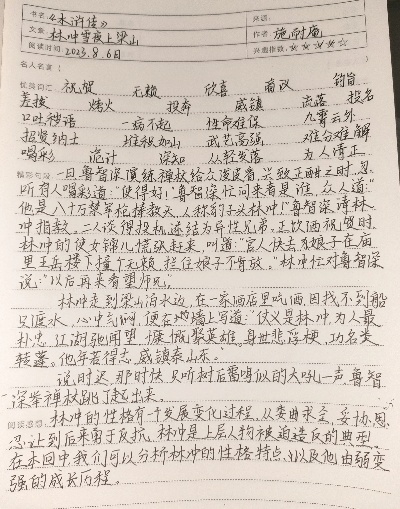 书名:《水浒传》 来源:
文章: 林冲雪夜上梁山 作者: 施耐庵
阅读时间: 2023.8.6日 兴趣指数:☆☆☆☆☆
名人名言:
优美词汇: 祝贺 无赖 欣喜 商议 钧旨
差拨 烽火 投奔 威镇 流落 投名
口吐秽语 一病不起 性命难保 九霄云外
招贤纳士 堆积如山 武艺高强 难分难解
喝彩 诡计 深知 从轻发落 为人清正
精彩句段: 一日,鲁智深演练禅杖给众泼皮看,兴致正酣之时,忽
听有人喝彩道:"使得好!"鲁智深忙问来者是谁,众人道:"
他是八十万禁军枪棒教头,人称豹子头林冲!"鲁智深请林
冲指教。二人谈得投机,还结为异性兄弟。正饮酒祝贺时,
林冲的使女锦儿慌张起来,叫道:"官人快去,娘子在庙
里五岳楼下撞个无赖,拦住娘子不肯放。"林冲忙对鲁智深
说:"以后再来看望师兄;"
林冲走到梁山泊水边,在一家酒店里吃酒,因找不到船
只渡水,心中气闷,便在地墙上写道:"仗义是林冲,为人最
朴忠。江湖驰闻望,慷慨聚英雄。身世悲浮梗,功名类
转蓬。他年若得志,威镇泰山东。"
说时迟,那时快,只听树后雷鸣似的大吼一声,鲁智
深举禅杖跳了起出来。
阅读感想: 林冲的性格有一个发展变化过程,从委曲求全,妥协,忍,
忍,让到后来勇于反抗,林冲是上层人物被迫造反的典型,
在本回中,我们可以分析林冲的性格特点,以及他由弱变
强的成长历程。